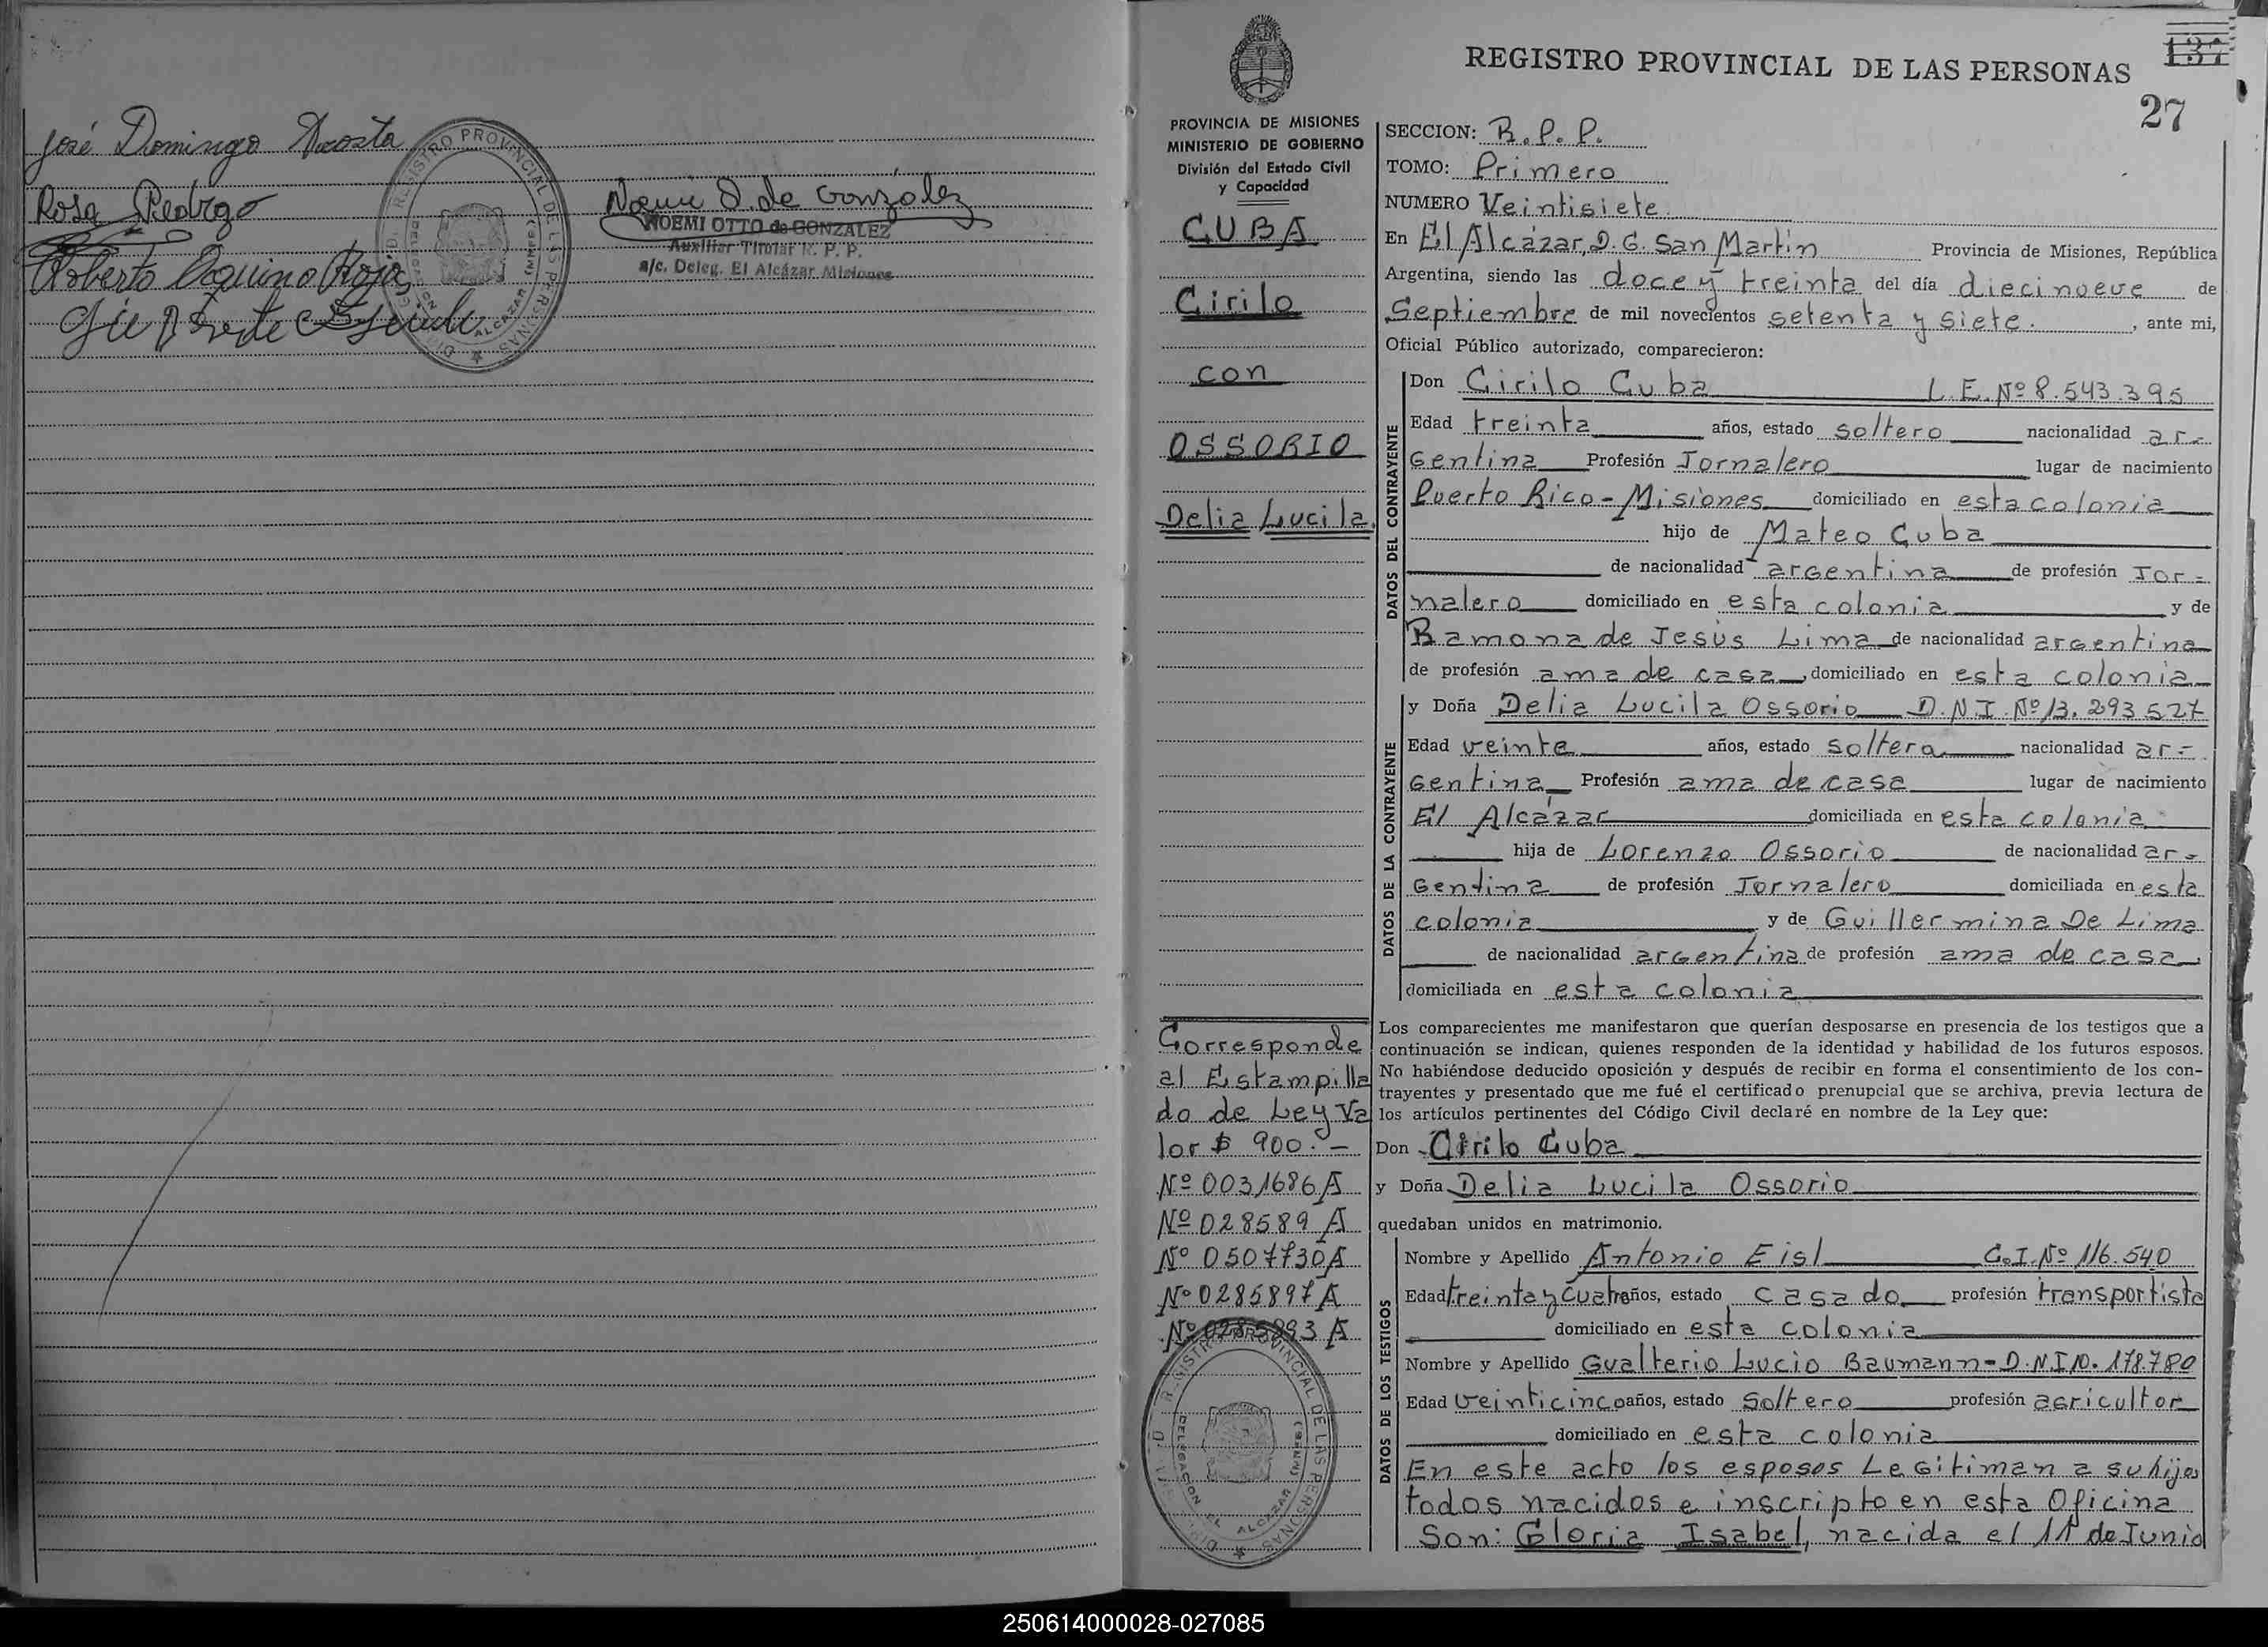 José Domingo Acosta
Rosa Pedrozo
Roberto Aquino Rojas
Noemi O. de González
NOEMI OTTO de GONZALEZ
Auxiliar Titular R. P. P.
a/c. Deleg. El Alcázar Misiones
REGISTRO PROVINCIAL DE LAS PERSONAS
137
27
PROVINCIA DE MISIONES
MINISTERIO DE GOBIERNO
División del Estado Civil
y Capacidad
CUBA
Cirilo
con
OSSORIO
Delia Lucila
SECCION: R.P.P.
TOMO: Primero
NUMERO Veintisiete
En El Alcázar, D.G. San Martin Provincia de Misiones, República
Argentina, siendo las doce y treinta del día diecinueve de
Septiembre de mil novecientos setenta y siete. , ante mi,
Oficial Público autorizado, comparecieron:
DATOS DEL CONTRAYENTE
Don Cirilo Cuba L.E. Nº 8.543.395
Edad treinta años, estado soltero nacionalidad ar-
gentina Profesión Jornalero lugar de nacimiento
Puerto Rico - Misiones domiciliado en esta colonia
hijo de Mateo Cuba
de nacionalidad argentina de profesión Jor-
nalero domiciliado en esta colonia y de
Ramona de Jesús Lima de nacionalidad argentina
de profesión ama de casa, domiciliado en esta colonia
DATOS DE LA CONTRAYENTE
y Doña Delia Lucila Ossorio D.N.I. Nº 13.293.527
Edad veinte años, estado soltera nacionalidad ar-
gentina Profesión ama de casa lugar de nacimiento
El Alcázar domiciliada en esta colonia
hija de Lorenzo Ossorio de nacionalidad ar-
gentina de profesión Jornalero domiciliada en esta
colonia y de Guillermina De Lima
de nacionalidad argentina de profesión ama de casa
domiciliada en esta colonia
Los comparecientes me manifestaron que querían desposarse en presencia de los testigos que a
continuación se indican, quienes responden de la identidad y habilidad de los futuros esposos.
No habiéndose deducido oposición y después de recibir en forma el consentimiento de los con-
trayentes y presentado que me fué el certificado prenupcial que se archiva, previa lectura de
los artículos pertinentes del Código Civil declaré en nombre de la Ley que:
Don Cirilo Cuba
y Doña Delia Lucila Ossorio
quedaban unidos en matrimonio.
Corresponde
al Estampilla
do de Ley Va
lor $ 900.-
Nº 0031686 A
Nº 028589 A
Nº 0507730 A
Nº 0285897 A
Nº 0285893 A
DATOS DE LOS TESTIGOS
Nombre y Apellido Antonio Eisl C.I. Nº 116.540
Edad treinta y cuatro años, estado casado profesión transportista
domiciliado en esta colonia
Nombre y Apellido Gualterio Lucio Baumann - D.N.I. 10.178.780
Edad veinticinco años, estado soltero profesión agricultor
domiciliado en esta colonia
En este acto los esposos Legitiman a su hijos
todos nacidos e inscripto en esta Oficina
Son: Gloria Isabel, nacida el 11 de Junio
250614000028-027085